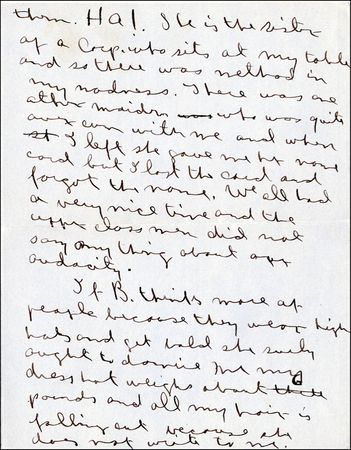 them. Ha! She is the sister
of a Corp. who sits at my table
and so there was method in
my madness. There was one
other maiden who was quite
even with me and when
I left she gave me her name
card but I lost the card and
forgot the name. We all had
a very nice time and the
upper class men did not
say anything about our
audacity.
If B. thinks more of
people because they wear high
hats and get bald she surely
ought to admire me my
dress hat weighs about 6
pounds and all my hair is
falling out because she
does not write to me.